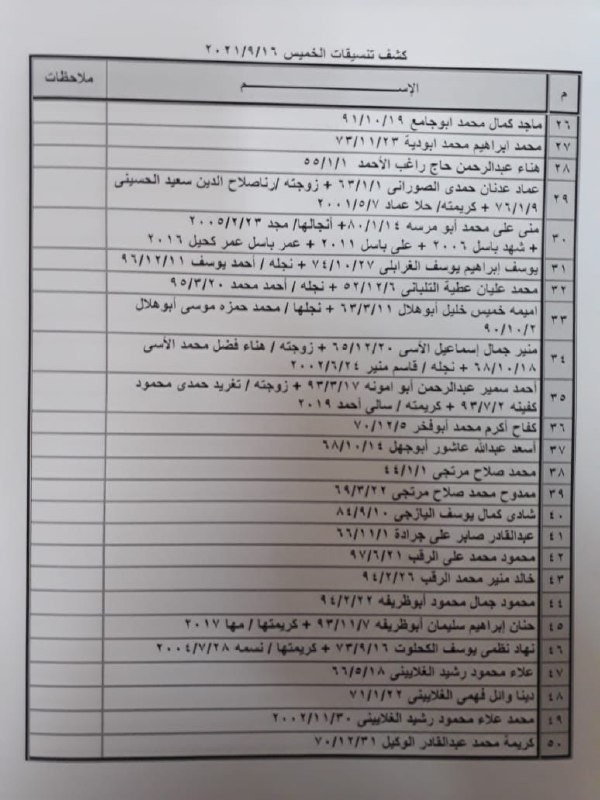 كشف تنسيقات الخميس ٢٠٢١/٩/١٦
م الإســـم ملاحظات
٢٦ ماجد كمال محمد ابوجامع ٩١/١٠/١٩
٢٧ محمد ابراهيم محمد ابودية ٧٣/١١/٢٣
٢٨ هناء عبدالرحمن حاج راغب الأحمد ٥٥/١/١
٢٩ عماد عدنان حمدى الصورانى ٦٣/١/١ + زوجته /رناصلاح الدين سعيد الحسينى
٧٦/١/٩ + كريمته/ حلا عماد ٢٠٠١/٥/٧
٣٠ منى على محمد أبو مرسه ٨٠/١/١٤+ أنجالها/ مجد ٢٠٠٥/٢/٢٣
+ شهد باسل ٢٠٠٦ + على باسل ٢٠١١ + عمر باسل عمر كحيل ٢٠١٦
٣١ يوسف إبراهيم يوسف الغرابلى ٧٤/١٠/٢٧ + نجله / أحمد يوسف ٩٦/١٢/١١
٣٢ محمد عليان عطية التلبانى ٥٢/١٢/٦ + نجله / أحمد محمد ٩٥/٣/٢٠
٣٣ اميمه خميس خليل أبوهلال ٦٣/٣/١١ + نجلها / محمد حمزه موسى أبوهلال
٩٠/١٠/٢
٣٤ منير جمال إسماعيل الأسى ٦٥/١٢/٢٠ + زوجته / هناء فضل محمد الأسى
٦٨/١٠/١٨ + نجله / قاسم منير ٢٠٠٢/٦/٢٤
٣٥ أحمد سمير عبدالرحمن أبو امونه ٩٣/٣/١٧ + زوجته / تغريد حمدى محمود
كفينه ٩٣/٧/٢ + كريمته / سالى أحمد ٢٠١٩
٣٦ كفاح أكرم محمد أبوفخر ٧٠/١٢/٥
٣٧ أسعد عبدالله عاشور أبوجهل ٦٨/١٠/١٤
٣٨ محمد صلاح مرتجى ٤٤/١/١
٣٩ ممدوح محمد صلاح مرتجى ٦٩/٣/٢٢
٤٠ شادى كمال يوسف اليازجى ٨٤/٩/١٠
٤١ عبدالقادر صابر على جرادة ٦٦/١١/١
٤٢ محمود محمد على الرقب ٩٧/٦/٢١
٤٣ خالد منير محمد الرقب ٩٤/٢/٢٦
٤٤ محمود جمال محمود أبوظريفه ٩٤/٢/٢٢
٤٥ حنان إبراهيم سليمان أبوظريفه ٩٣/١١/٧ + كريمتها / مها ٢٠١٧
٤٦ نهاد نظمى يوسف الكحلوت ٧٣/٩/١٦ + كريمتها / نسمه ٢٠٠٤/٧/٢٨
٤٧ علاء محمود رشيد الغلايينى ٦٦/٥/١٨
٤٨ دينا وائل فهمى الغلايينى ٧١/١/٢٢
٤٩ محمد علاء محمود رشيد الغلايينى ٢٠٠٢/١١/٣٠
٥٠ كريمة محمد عبدالقادر الوكيل ٧٠/١٢/٣١